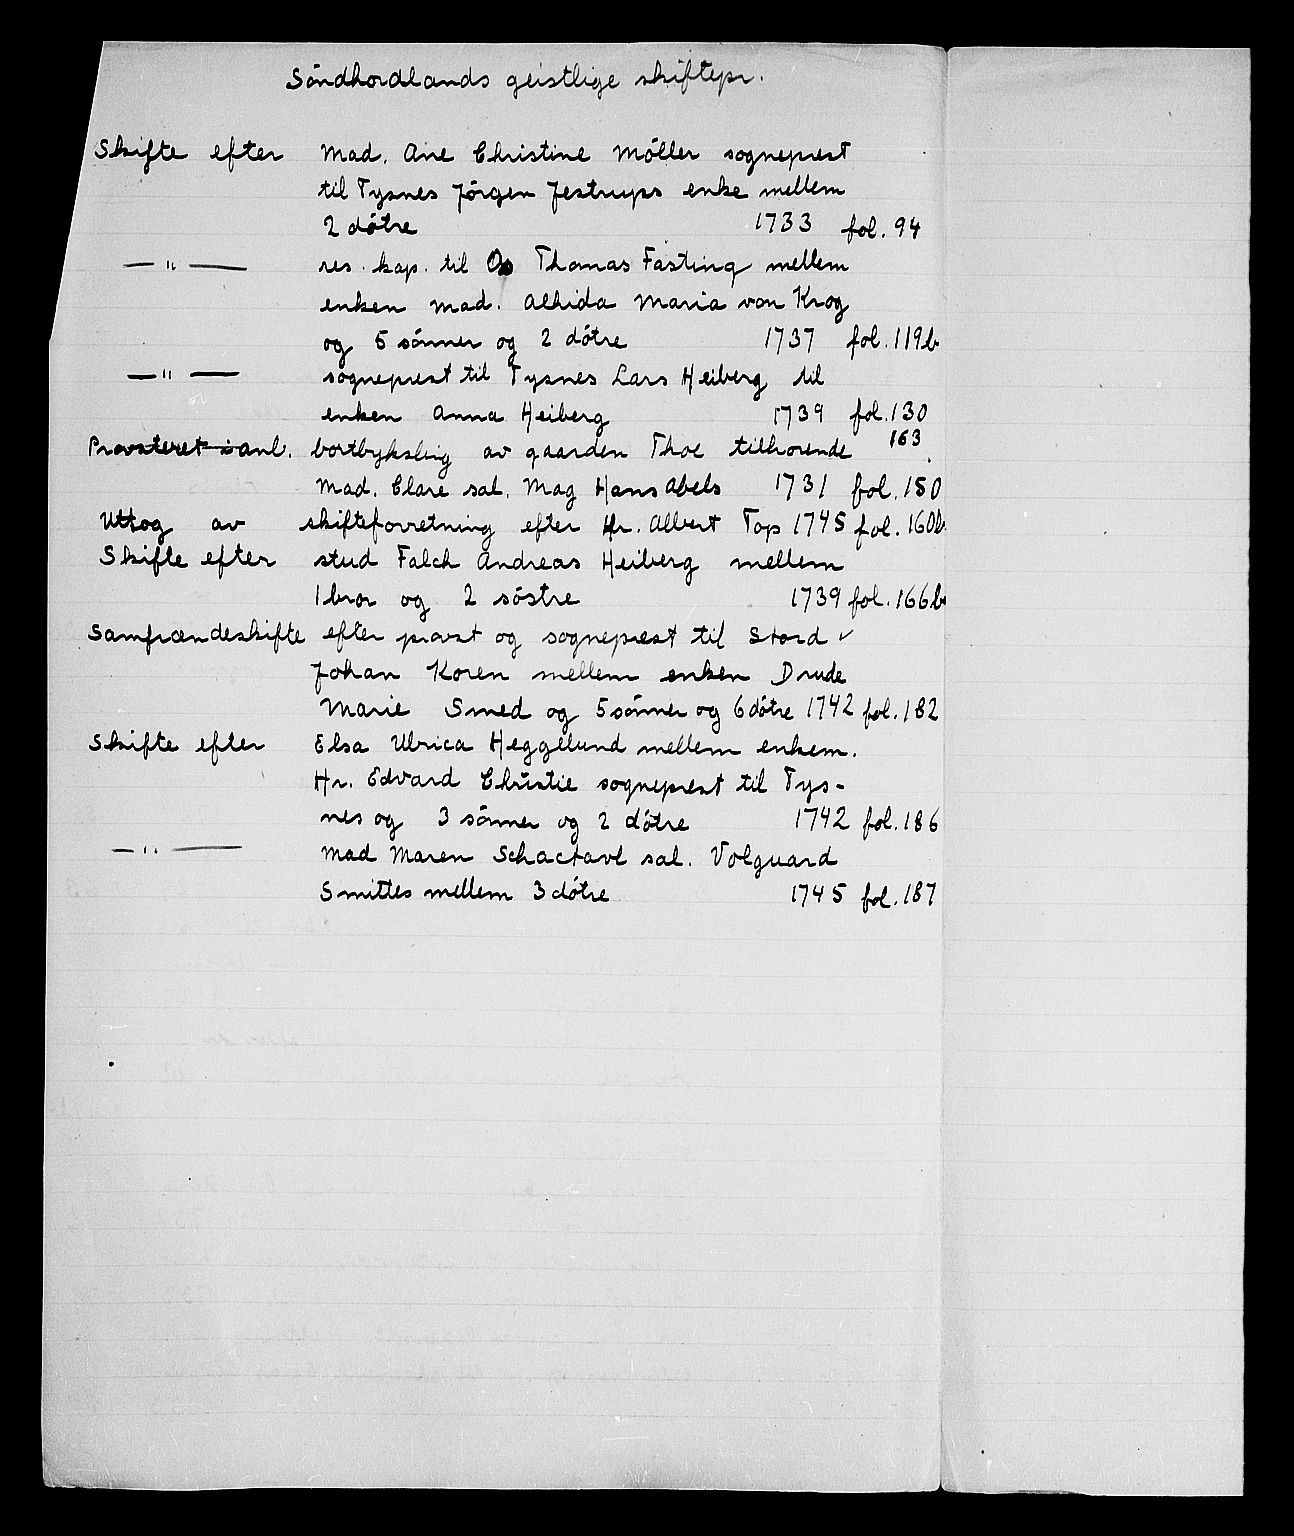 Söndhordlands geistlige skiftepr.
Skifte efter Mad. Ane Christine Möller sogneprest
til Tysnes Jörgen Jestrups enke mellem
2 dötre 1733 fol. 94
— " — res. kap. til Os Thomas Fasting mellem
enken mad. Alhida Maria von Krog
og 5 sönner og 2 dötre 1737 fol. 119b
— " — sogneprest til Tysnes Lars Heiberg til
enken Anna Heiberg 1739 fol. 130
163
Provsteret i anl. bortbyksling av gaarden Thoe tilhorende
Mad. Clare sal. Mag Hans Abels 1731 fol. 150
Uttog av skifteforretning efter Hr. Albert Top 1745 fol. 160b
Skifte efter stud Falch Andreas Heiberg mellem
1 bror og 2 söstre 1739 fol. 166b
Samfrændeskifte efter provst og sogneprest til Stord ✓
Johan Koren mellem enken Drude
Marie Smed og 5 sönner og 6 dötre 1742 fol. 182
Skifte efter Elsa Ulrica Heggelund mellem enkem.
Hr. Edvard Christie sogneprest til Tys-
nes og 3 sönner og 2 dötre 1742 fol. 186
— " — Mad Maren Schactavl sal. Volguard
Smittes mellem 3 dötre 1745 fol. 187